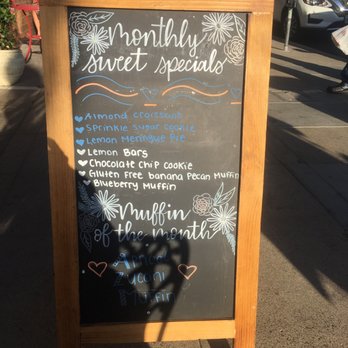 Monthly
sweet specials
Almond croissant
Sprinkle sugar cookie
Lemon Meringue Pie
Lemon Bars
Chocolate chip cookie
Gluten free banana Pecan Muffin
Blueberry Muffin
Muffin
of the month